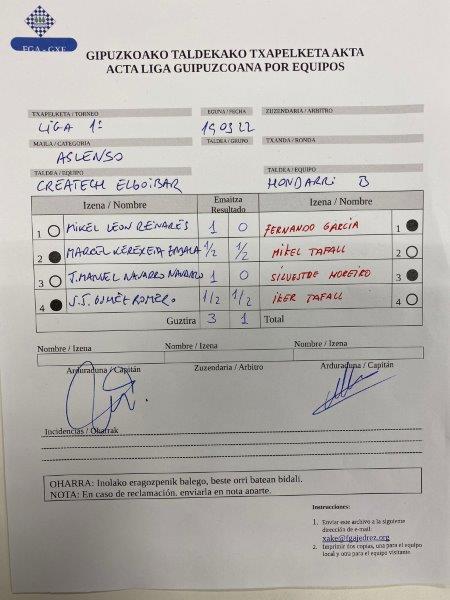 FGA - GXE
GIPUZKOAKO TALDEKAKO TXAPELKETA AKTA
ACTA LIGA GUIPUZCOANA POR EQUIPOS
TXAPELKETA / TORNEO EGUNA / FECHA ZUZENDARIA / ARBITRO
LIGA 1ª 190322
MAILA / CATEGORIA TALDEA / GRUPO TXANDA / RONDA
ASCENSO
TALDEA / EQUIPO TALDEA / EQUIPO
CREATECH ELGOIBAR HONDARRI B
Izena / Nombre Emaitza Resultado Izena / Nombre
1 MIKEL LEON REINARES 1 0 FERNANDO GARCIA 1
2 MARCEL KEREXETA 1/2 1/2 MIKEL TAFALL 2
3 J. MANUEL NAVARRO NAVARRO 1 0 SILVESTRE MOREIRO 3
4 J.J. GOMEZ ROMERO 1/2 1/2 IKER TAFALL 4
Guztira 3 1 Total
Nombre / Izena Nombre / Izena Nombre / Izena
Arduraduna / Capitán Zuzendaria / Arbitro Arduraduna / Capitán
Incidencias / Oharrak
OHARRA: Inolako eragozpenik balego, beste orri batean bidali.
NOTA: En caso de reclamación, enviarla en nota aparte.
Instrucciones:
1. Enviar este archivo a la siguiente
dirección de e-mail:
xake@fgajedrez.org
2. Imprimir dos copias, una para el equipo
local y otra para el equipo visitante.